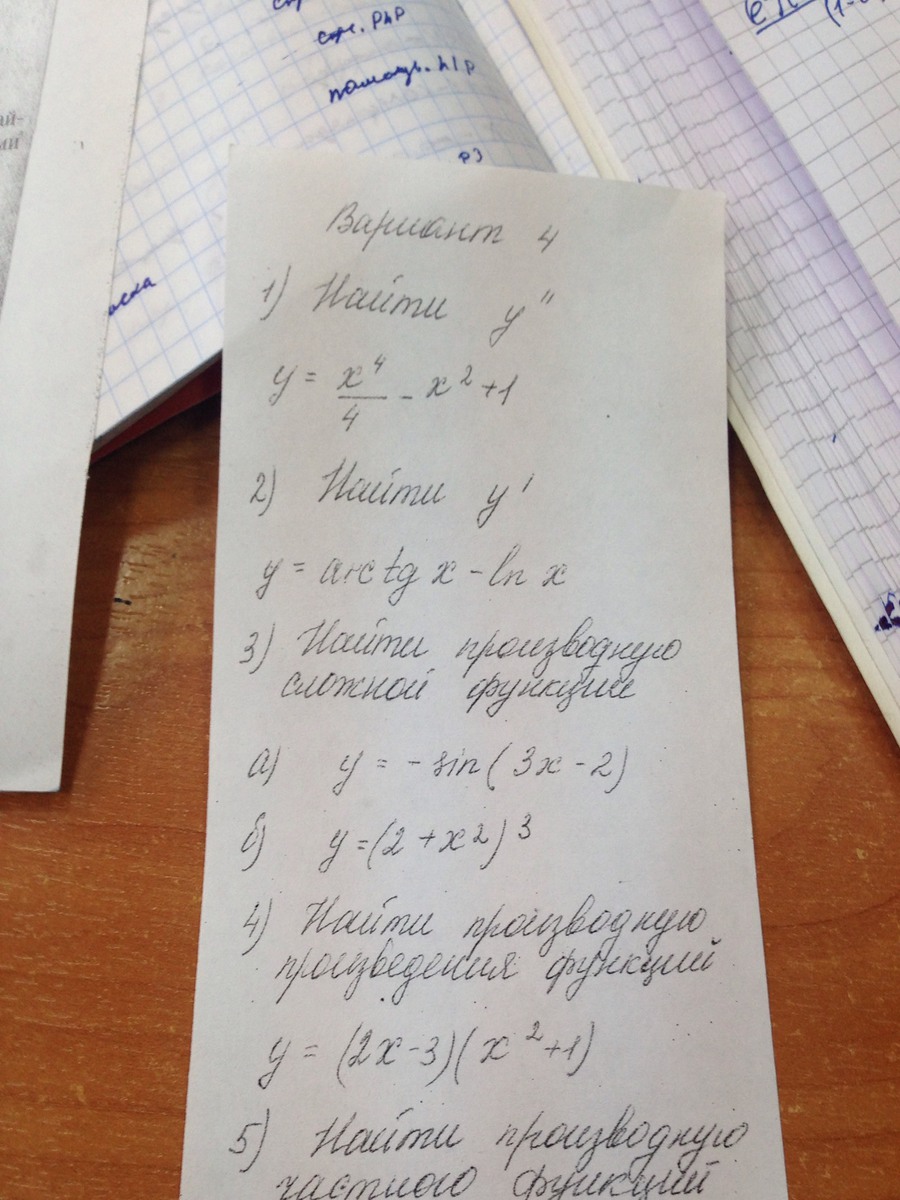 стр. PhP
помощь. h/p
рз
Вариант 4
1) Найти y"
y = x⁴/4 - x² + 1
2) Найти y'
y = arctg x - ln x
3) Найти производную
сложной функции
а) y = - sin(3x - 2)
б) y = (2 + x²)³
4) Найти производную
произведения функций
y = (2x - 3)(x² + 1)
5) Найти производную
частного функций